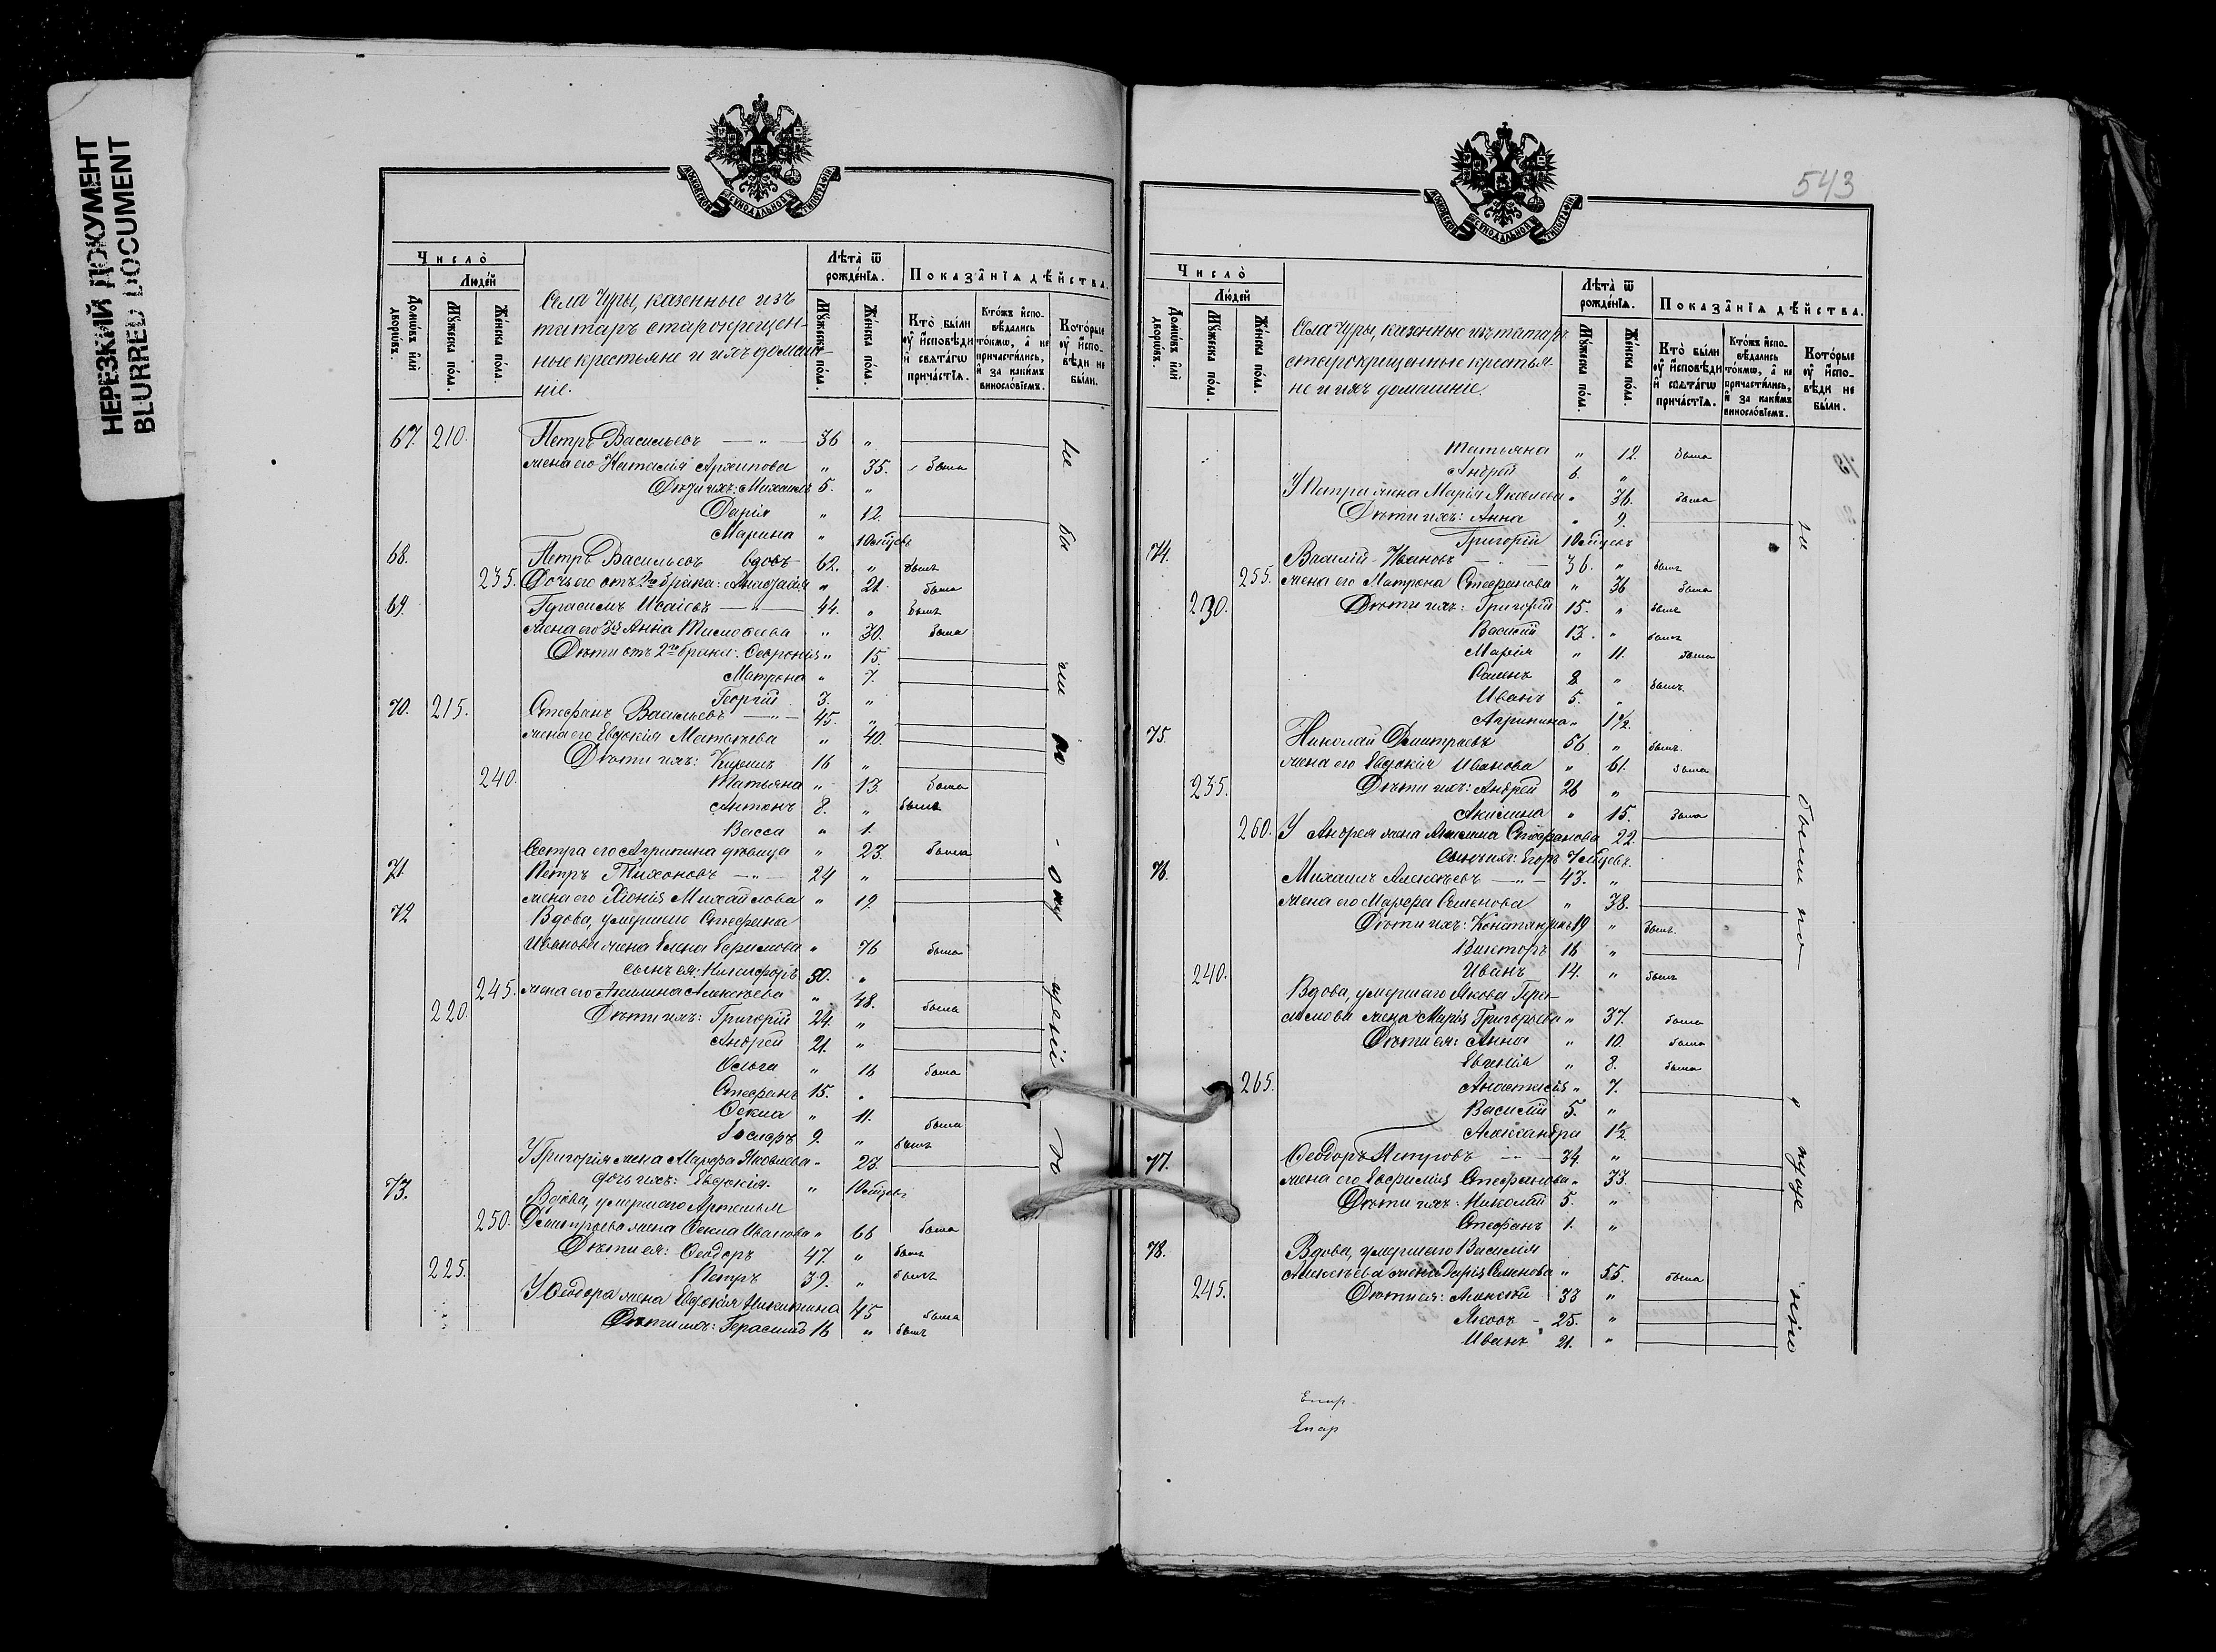 НЕРЕЗКИЙ ДОКУМЕНТ
BLURRED DOCUMENT
МОСКОВСКОЙ СѴНОДАЛЬНОЙ ТИПОГРАФІИ
Число̀
Люде́й
Домѡ́въ и҆лѝ дворѡ́въ.
Мꙋ́жеска по́ла.
Же́нска по́ла.
Села Чуры, казенные изъ
татаръ старокрещен-
ные крестьяне и ихъ домаш-
ніе.
Лѣ́та ѿ рожде́нїѧ.
Мꙋ́жеска по́ла.
Же́нска по́ла.
Показа̑нїѧ дѣ́йства.
Кто̀ бы́ли ᲂу҆ и҆сповѣ́ди и҆ свѧта́гѡ прича́стїѧ.
Кто́жъ и҆спо-вѣ́дались то́кмѡ, а҆ не причасти́лись, и҆ за каки́мъ винособло́вїемъ.
Кото́рые ᲂу҆ и҆спо-вѣ́ди не бы́ли.
67. 210. Петръ Васильевъ — " — 36 "
жена его Наталія Архипова " 35. была
Дѣти ихъ: Михаилъ 5. "
Дарія " 12.
Марина " 10 мѣцевъ
68. Петръ Васильевъ вдовъ 62. " былъ
235. Дочь его отъ 2го брака: " 21. была
69. Герасимъ Исаіевъ — " — 44. " былъ
жена его 3я Анна Тимоѳеева " 30. была
Дѣти отъ 2го брака: Ѳевронія " 15.
Матрона " 7.
Георгій 3. "
70. 215. Стефанъ Васильевъ — " — 45. "
жена его Евдокія Матвѣева " 40.
Дѣти ихъ: Кирилъ 16 "
240. Татьяна " 13. была
Антонъ 8. " былъ
Васса " 1.
Сестра его Агрипина дѣвица " 23. была
71. Петръ Тихоновъ — " — 24 "
жена его Хіонія Михайлова " 19.
72 Вдова, умершаго Стефана
Иванова жена Елена Ефимова " 76 была
сынъ ея: Никифоръ 50. "
245. жена его Акилина Алексѣева " 48. была
220. Дѣти ихъ: Григорій 24. "
Андрей 21. "
Ольга " 16 была
Стефанъ 15. "
Ѳекла " 11. была
9. " былъ
У Григорія жена Марѳа Яковлева " 23.
дочь ихъ: Евдокія " 10 мѣцевъ
73. Вдова, умершаго Артемія
250. Дмитріева жена Ѳекла Иванова " 66 была
Дѣти ея: Ѳеодоръ 47. " былъ
225. Петръ 39. " былъ
У Ѳеодора жена Евдокія Никитина 45 была
Дѣти ихъ: Герасимъ 16 " былъ
543
МОСКОВСКОЙ СѴНОДАЛЬНОЙ ТИПОГРАФІИ
Число̀
Люде́й
Домѡ́въ и҆лѝ дворѡ́въ.
Мꙋ́жеска по́ла.
Же́нска по́ла.
Села Чуры, казенные изъ татаръ
старокрещенные крестья-
не и ихъ домашніе.
Лѣ́та ѿ рожде́нїѧ.
Мꙋ́жеска по́ла.
Же́нска по́ла.
Показа̑нїѧ дѣ́йства.
Кто̀ бы́ли ᲂу҆ и҆сповѣ́ди и҆ свѧта́гѡ прича́стїѧ.
Кто́жъ и҆спо-вѣ́дались то́кмѡ, а҆ не причасти́лись, и҆ за каки́мъ винослов́їемъ.
Кото́рые ᲂу҆ и҆спо-вѣ́ди не бы́ли.
Татьяна " 12. была
Андрей 6. "
У Петра жена Марія Яковлева " 36. была
Дѣти ихъ: Анна " 9.
Григорій 10 мѣцевъ
74. Василій Ивановъ 36. " былъ
255. жена его Матрона Стефанова " 36 была
230. Дѣти ихъ: Григорій 15. " былъ
Василій 13. " былъ
Марія " 11. была
8. " былъ
Иванъ 5. "
Агрипина " 1½.
75. Николай Дмитріевъ 56 " былъ
жена его Евдокія Иванова " 61. была
235. Дѣти ихъ: Андрей 26 "
Акилина " 15. была
260. У Андрея жена Акилина Стефанова 22.
сынъ ихъ: Егоръ 7 мѣцевъ.
76. Михаилъ Алексѣевъ — " — 43. "
жена его Марѳа Семенова " 38.
Дѣти ихъ: Константинъ 19 " былъ
Викторъ 16 "
240. Иванъ 14. " былъ
Вдова, умершаго Якова Гера-
симова жена Марія Григорьева " 37. была
Дѣти ея: Анна " 10. была
Евгенія " 8. была
265. Анастасія " 7.
Василій 5. "
Александра 1½.
77. Ѳеодоръ Петровъ — " — 34. "
жена его Евфимія Стефанова " 33.
Дѣти ихъ: Николай 5. "
Стефанъ 1. "
78. Вдова, умершаго Василія
Алексѣева жена Дарія Семенова " 55. была
245. Дѣти ея: Алексѣй 33 "
Яковъ - 25. "
Иванъ 21. "
не были по нужде
Епар
Епар